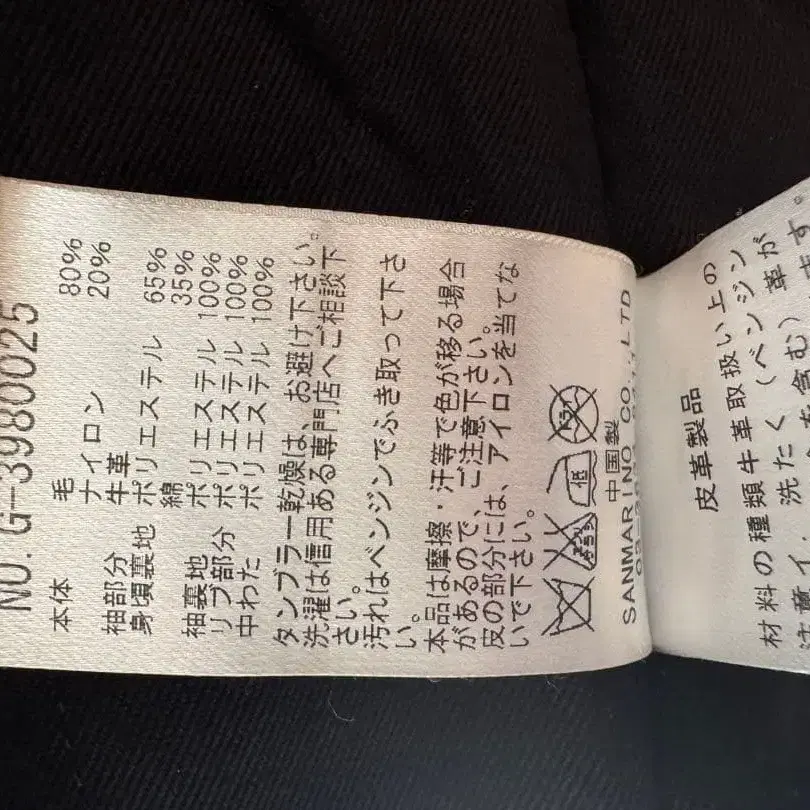 NO.G-3980025
本体 毛 80%
ナイロン 20%
袖部分 牛革
身頃裏地 ポリエステル 65%
綿 35%
袖裏地 ポリエステル 100%
リブ部分 ポリエステル 100%
中わた ポリエステル 100%
タンブラー乾燥は、お避け下さい。
洗濯は信用ある専門店へご相談下
さい。
汚れはベンジンでふき取って下さ
い。
本品は摩擦・汗等で色が移る場合
があるので、ご注意下さい。
皮の部分には、アイロンを当てな
いで下さい。
低
中国製
SANMARINO CO.,LTD
皮革製品
材料の種類牛革取扱い上の
注意イ.洗たく(ベンジン
を含む)革が
ます。